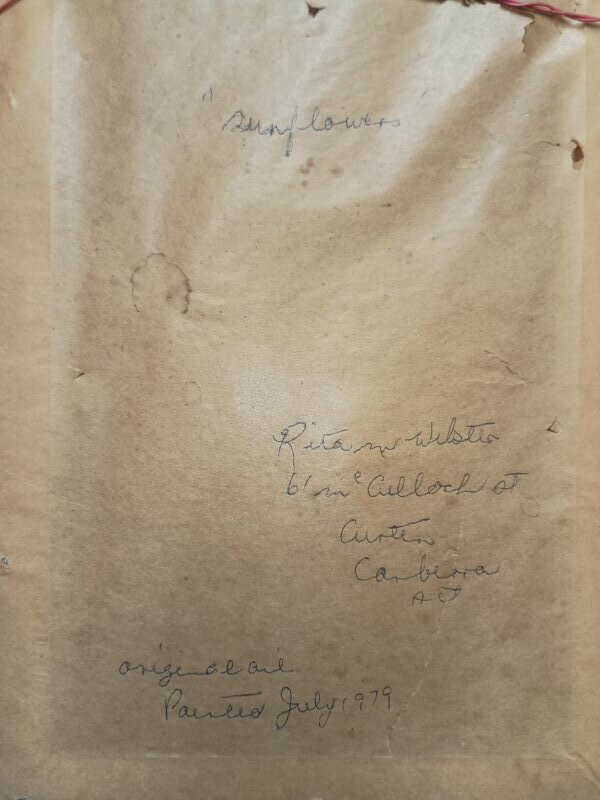 "Sunflowers
Rita M Webster
61 Mc Culloch St
Curtin
Canberra
ACT
original oil
Painted July 1979